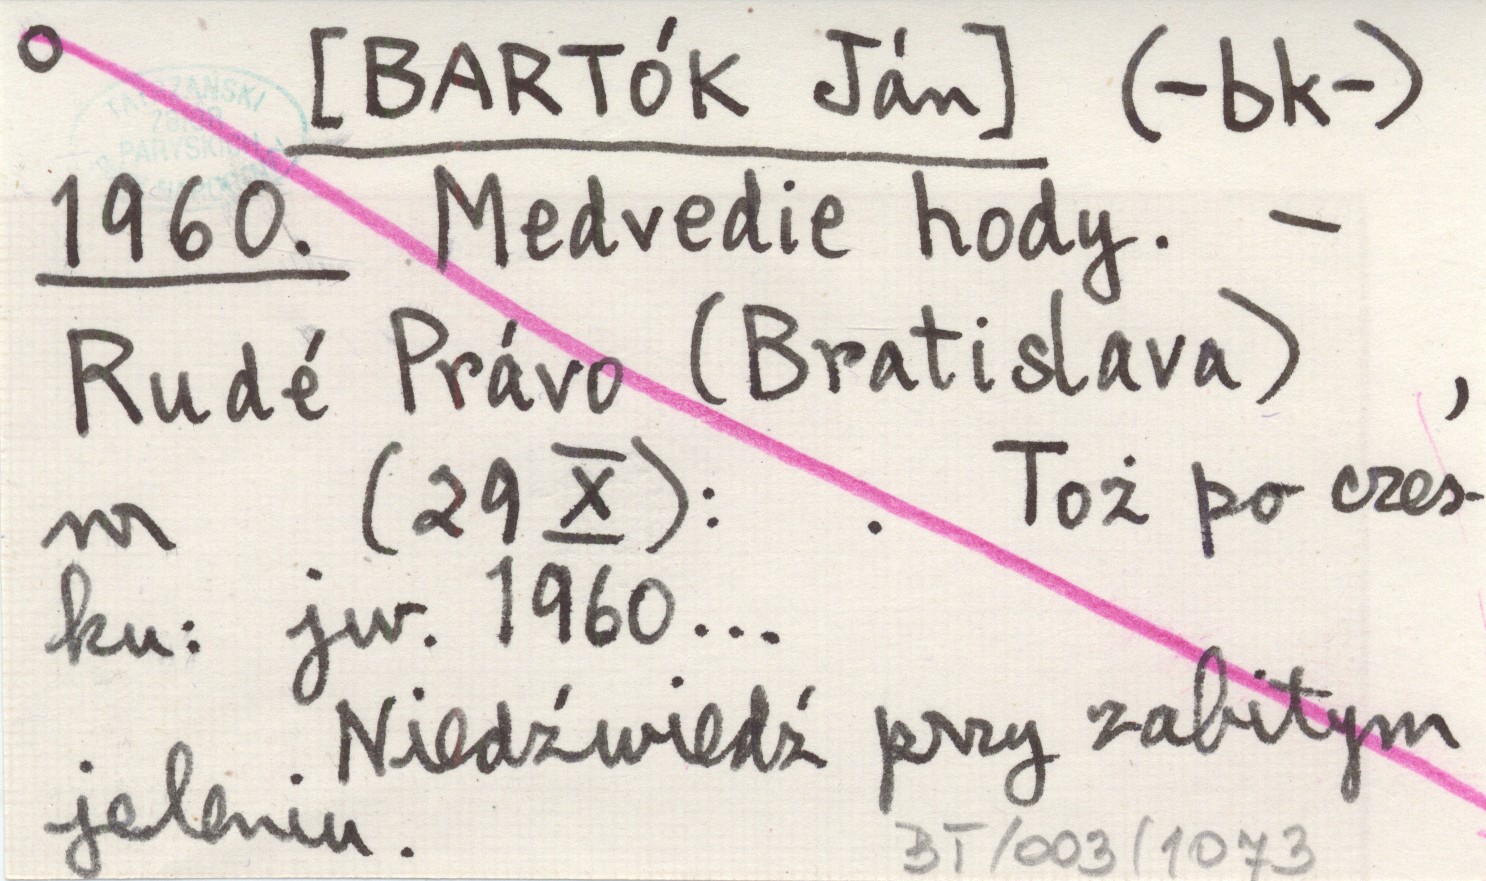 [BARTÓK Ján] (-bk-)
TATRZAŃSKI
PARYSKICH
1960. Medvedie hody. –
Rudé Právo (Bratislava) ,
nr (29 X): . Toż po czes-
ku: jw. 1960...
Niedźwiedź przy zabitym
jeleniu.
BT/003/1073